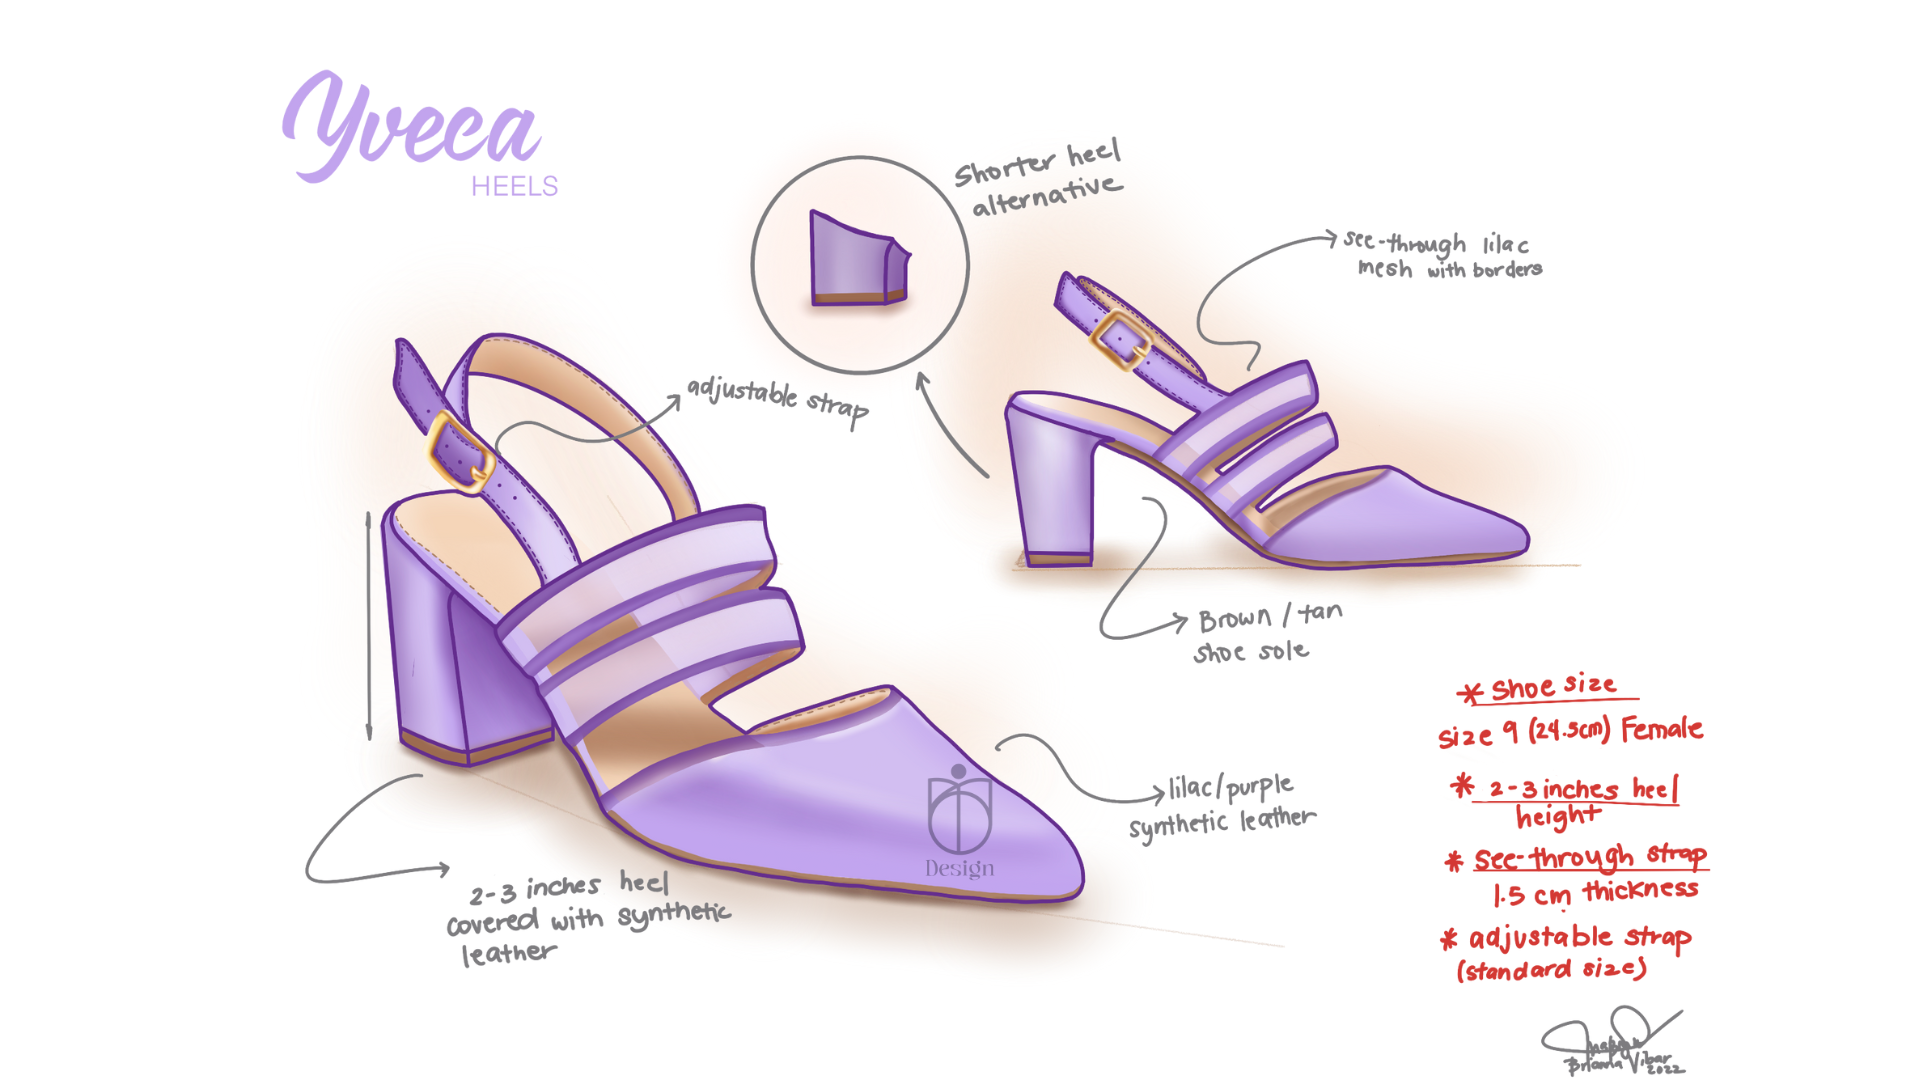 Yveca
HEELS
Shorter heel
alternative
see-through lilac
mesh with borders
adjustable strap
Brown / tan
shoe sole
lilac/purple
synthetic leather
Design
2-3 inches heel
covered with synthetic
leather
* Shoe size
size 9 (24.5cm) Female
* 2-3 inches heel
height
* see-through strap
1.5 cm thickness
* adjustable strap
(standard size)
Brianna Vibar
2022